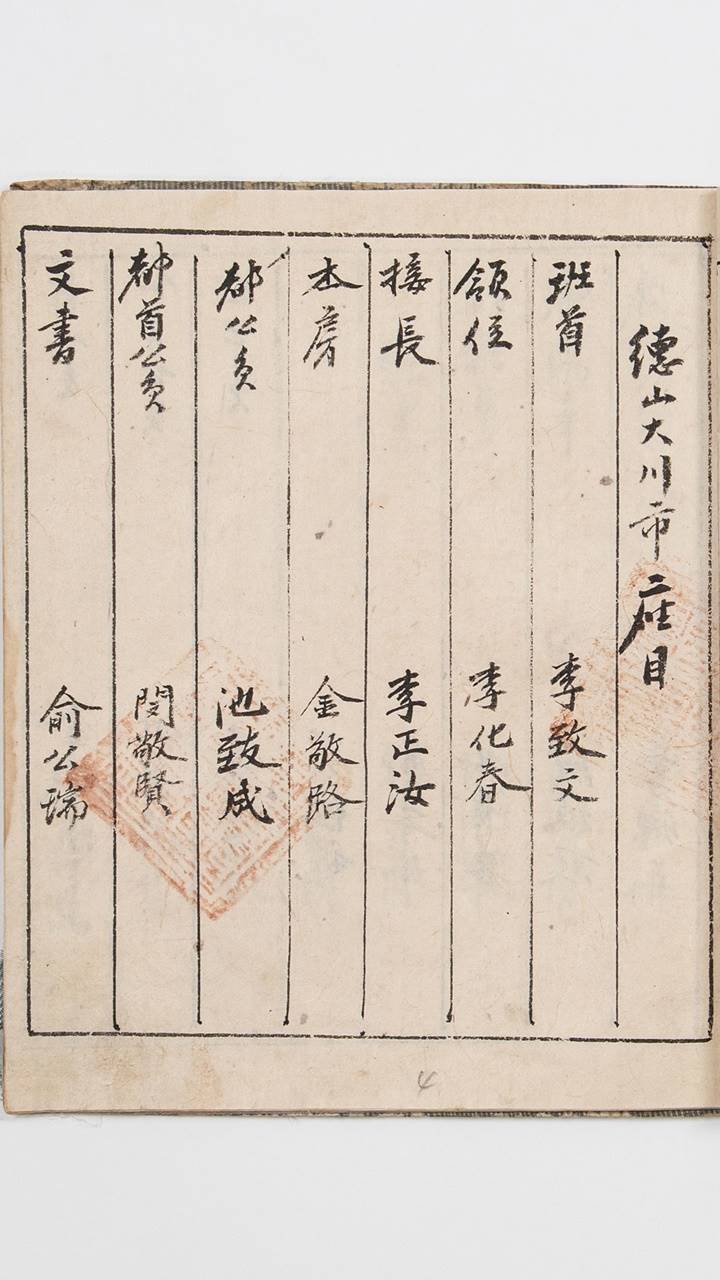 德山大川市座目
班首 李致文
領位 李化春
接長 李正汝
本房 金敬路
都公員 池致成
都首公員 閔敬賢
文書 俞公瑞
4